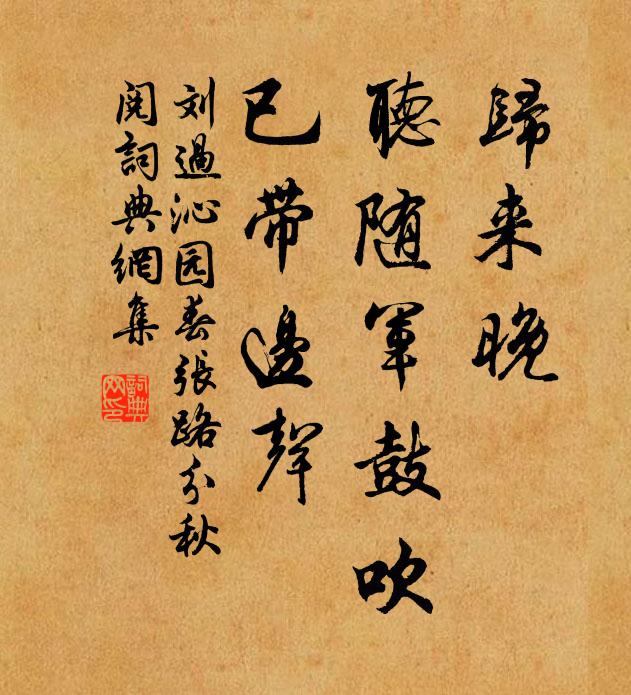 歸来晚
聽随軍鼓吹
已帶邊聲
刘過沁园春張路分秋
閱詞典網集
詞典網印